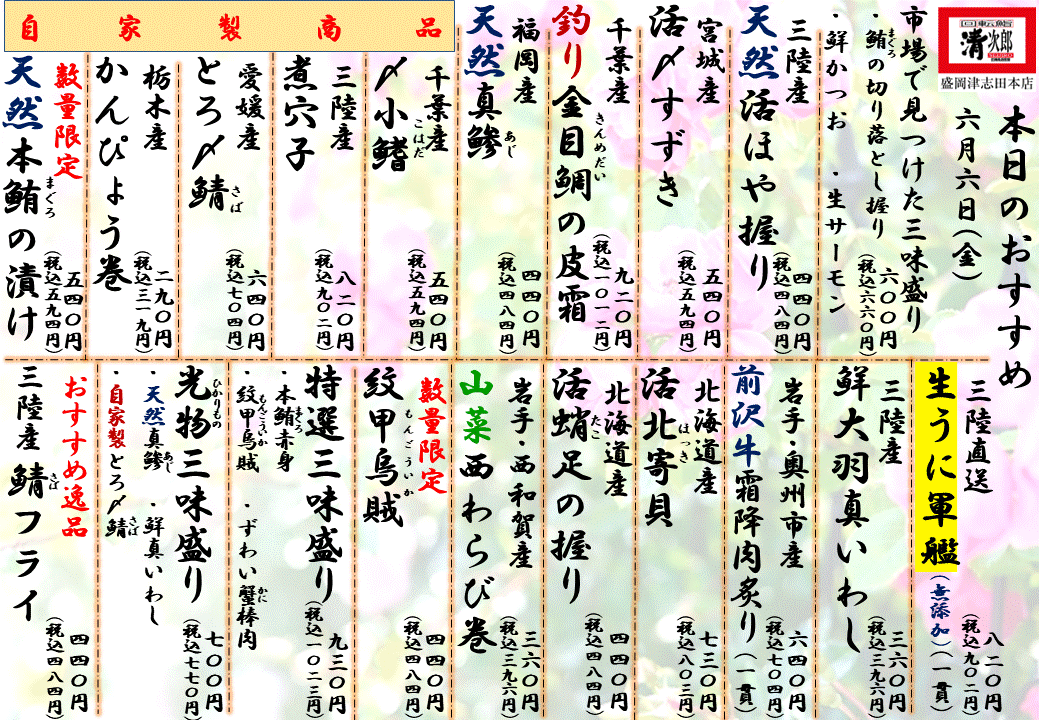 回転鮨
清次郎
盛岡津志田本店
本日のおすすめ
六月六日(金)
市場で見つけた三味盛り
・鮪の切り落とし握り
まぐろ
・鮮かつお ・生サーモン
六〇〇円
(税込六六〇円)
三陸産
天然活ほや握り
四四〇円
(税込四八四円)
宮城産
活〆すずき
五四〇円
(税込五九四円)
千葉産
釣り金目鯛の皮霜
きんめだい
九二〇円
(税込一〇一二円)
福岡産
天然真鯵
あじ
四四〇円
(税込四八四円)
自家製商品
千葉産
〆小鰭
こはだ
五四〇円
(税込五九四円)
三陸産
煮穴子
八二〇円
(税込九〇二円)
愛媛産
とろ〆鯖
さば
六四〇円
(税込七〇四円)
栃木産
かんぴょう巻
二九〇円
(税込三一九円)
数量限定
天然本鮪の漬け
まぐろ
五四〇円
(税込五九四円)
三陸直送
生うに軍艦(無添加)(一貫)
八二〇円
(税込九〇二円)
三陸産
鮮大羽真いわし
三六〇円
(税込三九六円)
岩手・奥州市産
前沢牛霜降肉炙り(一貫)
六四〇円
(税込七〇四円)
北海道産
活北寄貝
ほっき
七三〇円
(税込八〇三円)
北海道産
活蛸足の握り
たこ
四四〇円
(税込四八四円)
岩手・西和賀産
山菜西わらび巻
三六〇円
(税込三九六円)
数量限定
紋甲烏賊
もんごういか
四四〇円
(税込四八四円)
特選三味盛り
・本鮪赤身
まぐろ
・紋甲烏賊 ・ずわい蟹棒肉
もんごういか かに
九三〇円
(税込一〇二三円)
光物三味盛り
ひかりもの
・天然真鯵 ・鮮真いわし
あじ
・自家製とろ〆鯖
さば
七〇〇円
(税込七七〇円)
おすすめ逸品
三陸産 鯖フライ
さば
四四〇円
(税込四八四円)